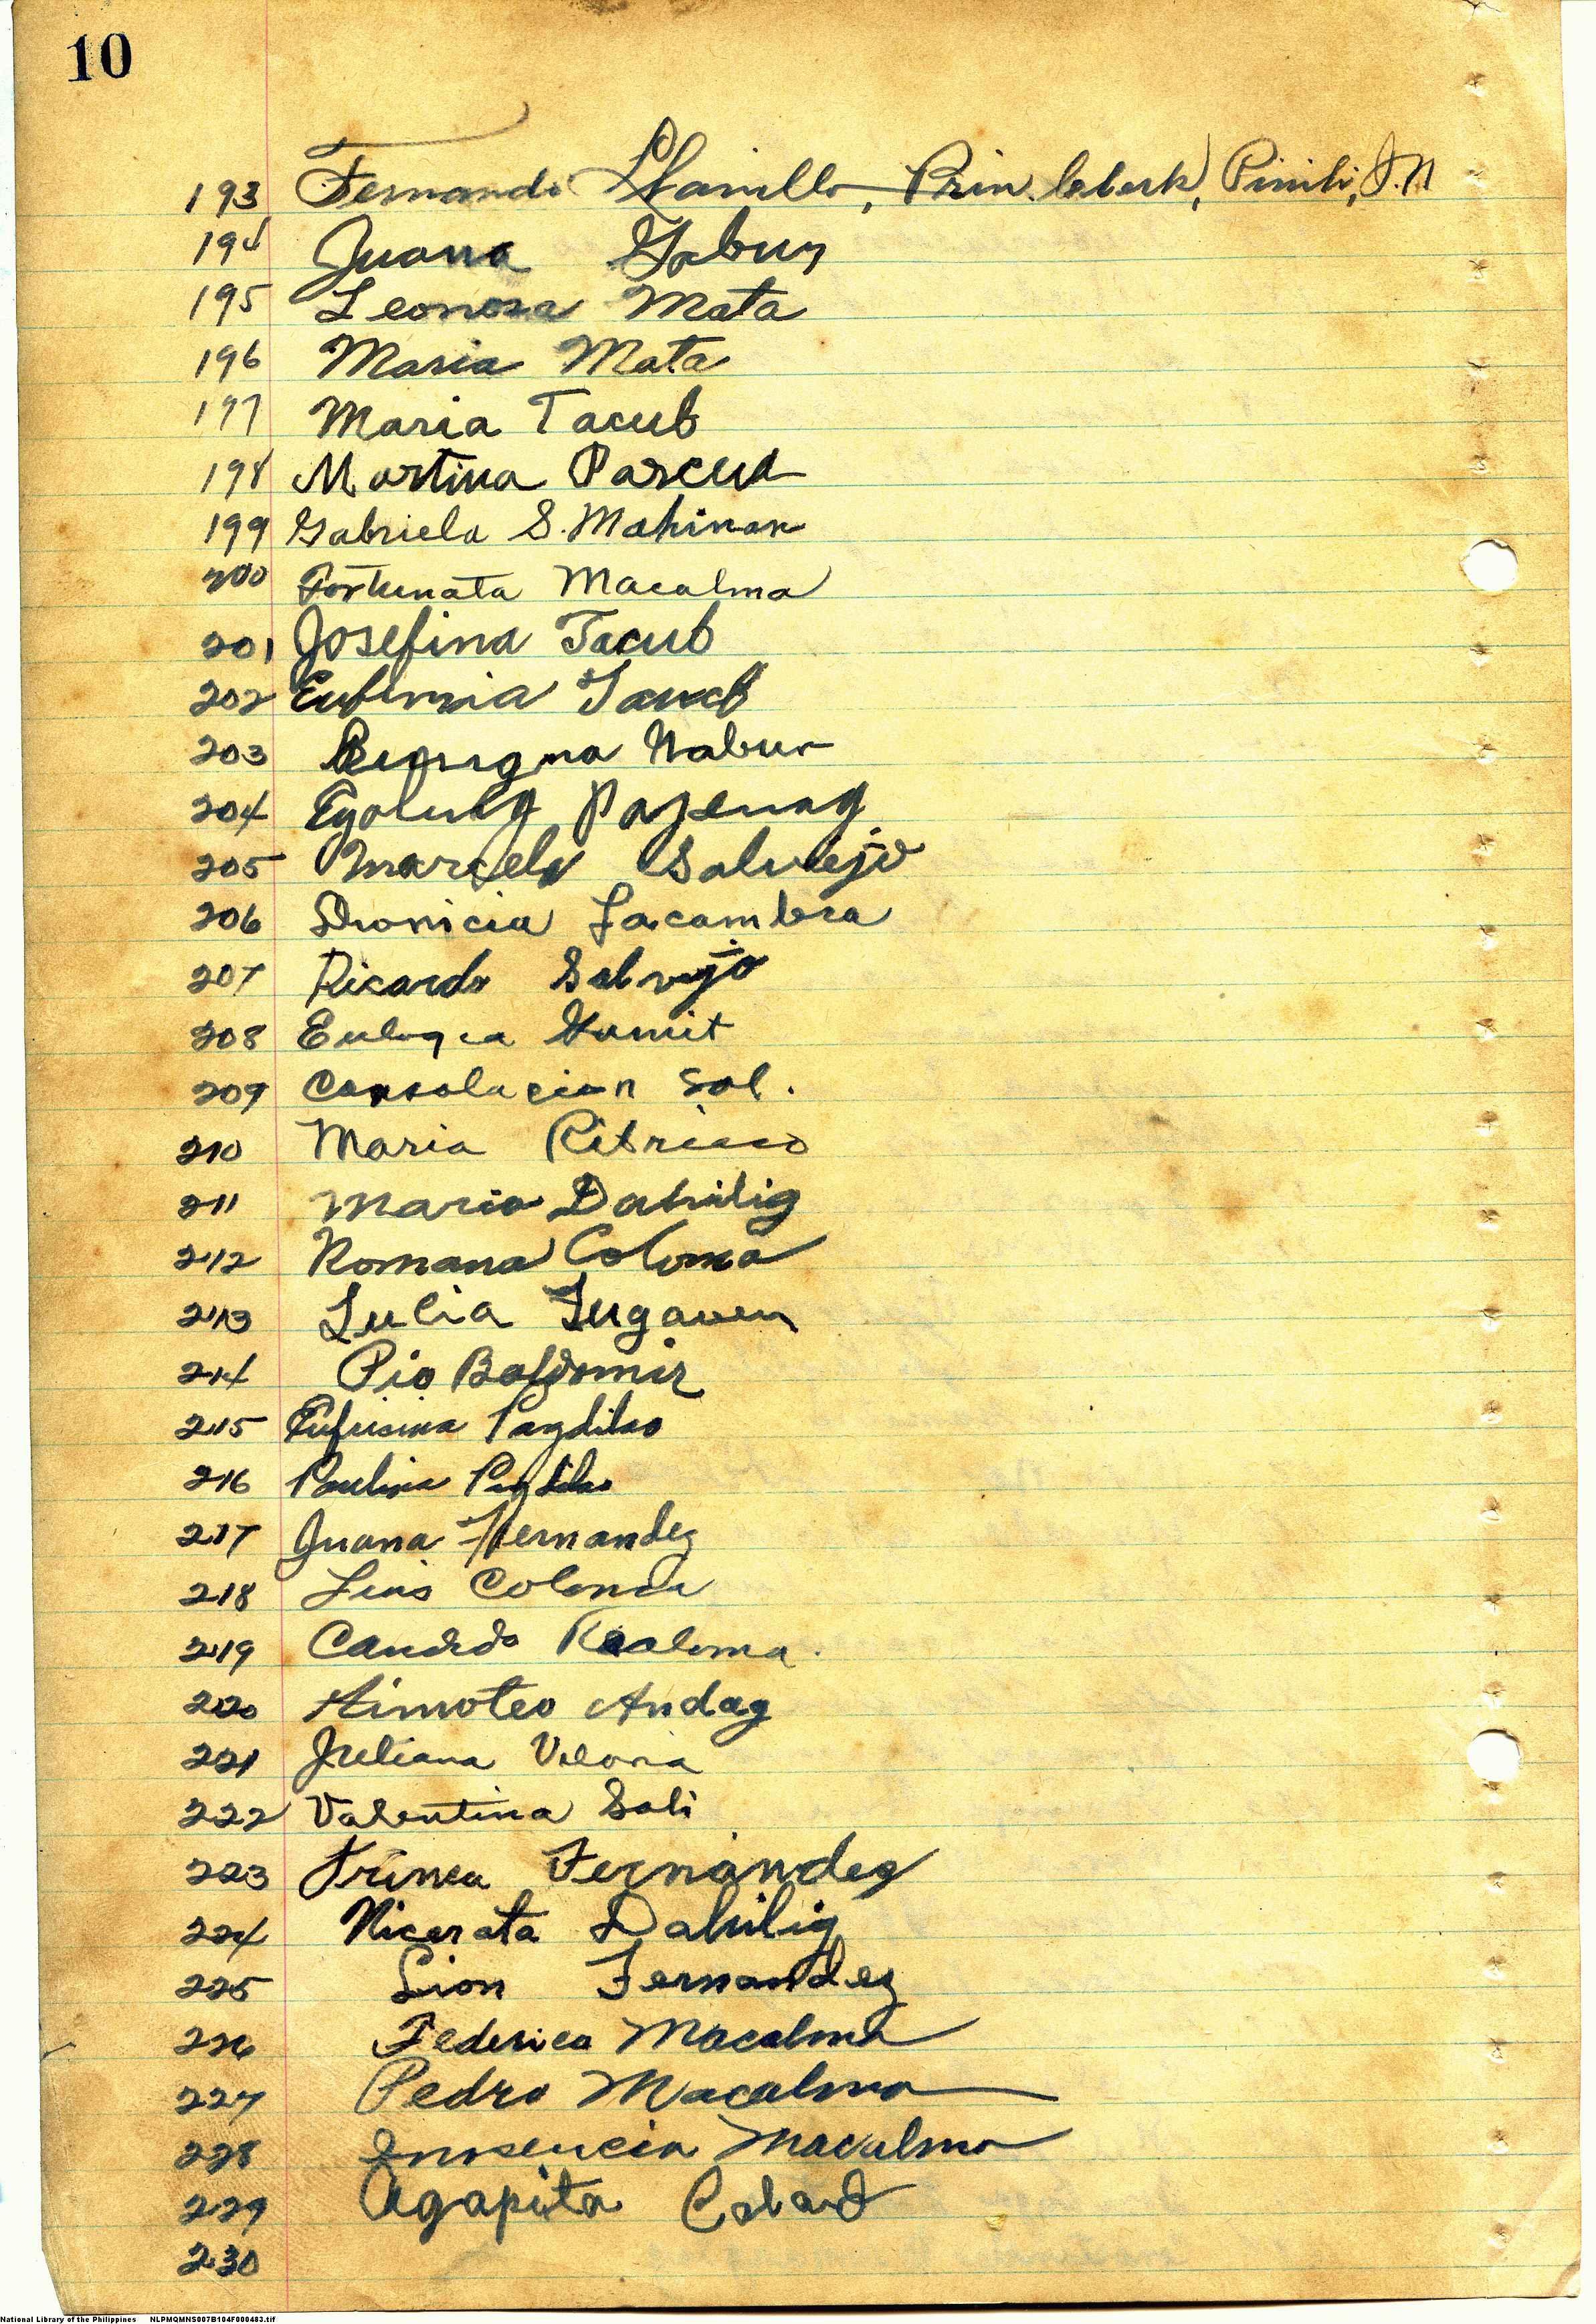 10
193 Fernando Llanillo, Prin. Pinili, I.N
194 Juana Gabur
195 Leonora Mata
196 Maria Mata
197 Maria Tacub
198 Martina Pascua
199 Gabriela S. Mahinan
200 Fortunata Macalma
201 Josefina Tacub
202 Eufemia Tacub
203 Nabur
204
205 Marcelo Salvejo
206 Dionicia Lacambra
207 Ricardo Salvejo
208 Eulogia Gamit
209 Consolacion Sol.
210 Maria
211 Maria Dahilig
212 Romana Coloma
213 Julia Lugawen
214 Pio Baldomir
215 Eufrisina Pagdilao
216 Paulina Pagdilao
217 Juana Hernandez
218 Luis Coloma
219 Candido
220 Timoteo Andag
221 Juliana Viloria
222 Valentina Sali
223 Trinea Fernandez
224 Nicerata Dahilig
225 Lion Fernandez
226 Federica Macalma
227 Pedro Macalma
228 Innosencia Macalma
229 Agapita
230
National Library of the Philippines NLPMQMNS007B104F000483.tif